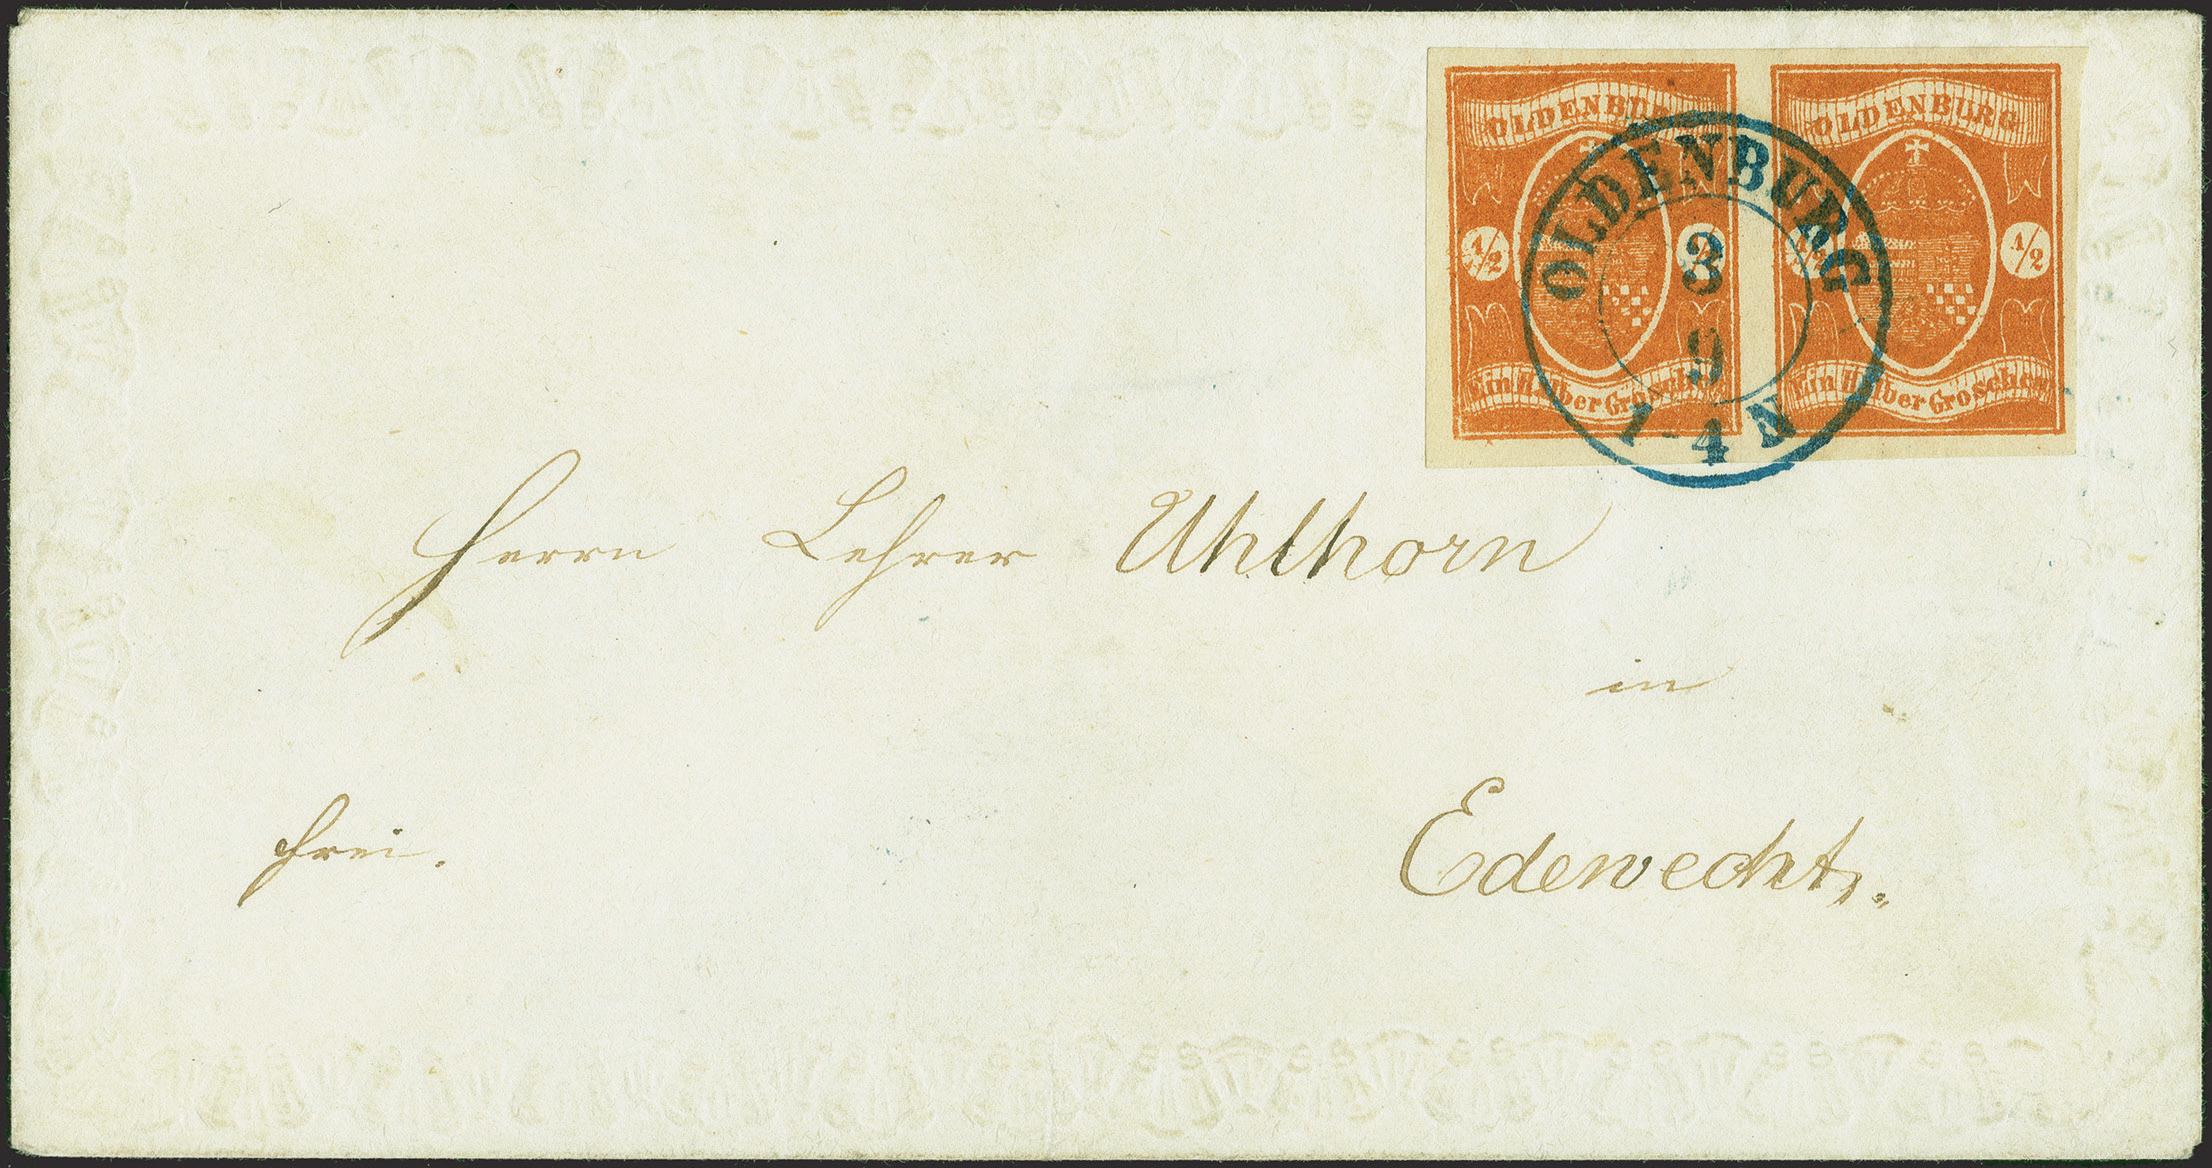 OLDENBURG OLDENBURG
1/2 1/2 1/2 1/2
Ein Halber Groschen Ein Halber Groschen
OLDENBURG
3
9
1-4 N
Herrn Lehrer Uhlhorn
in
Edewecht.
frei.